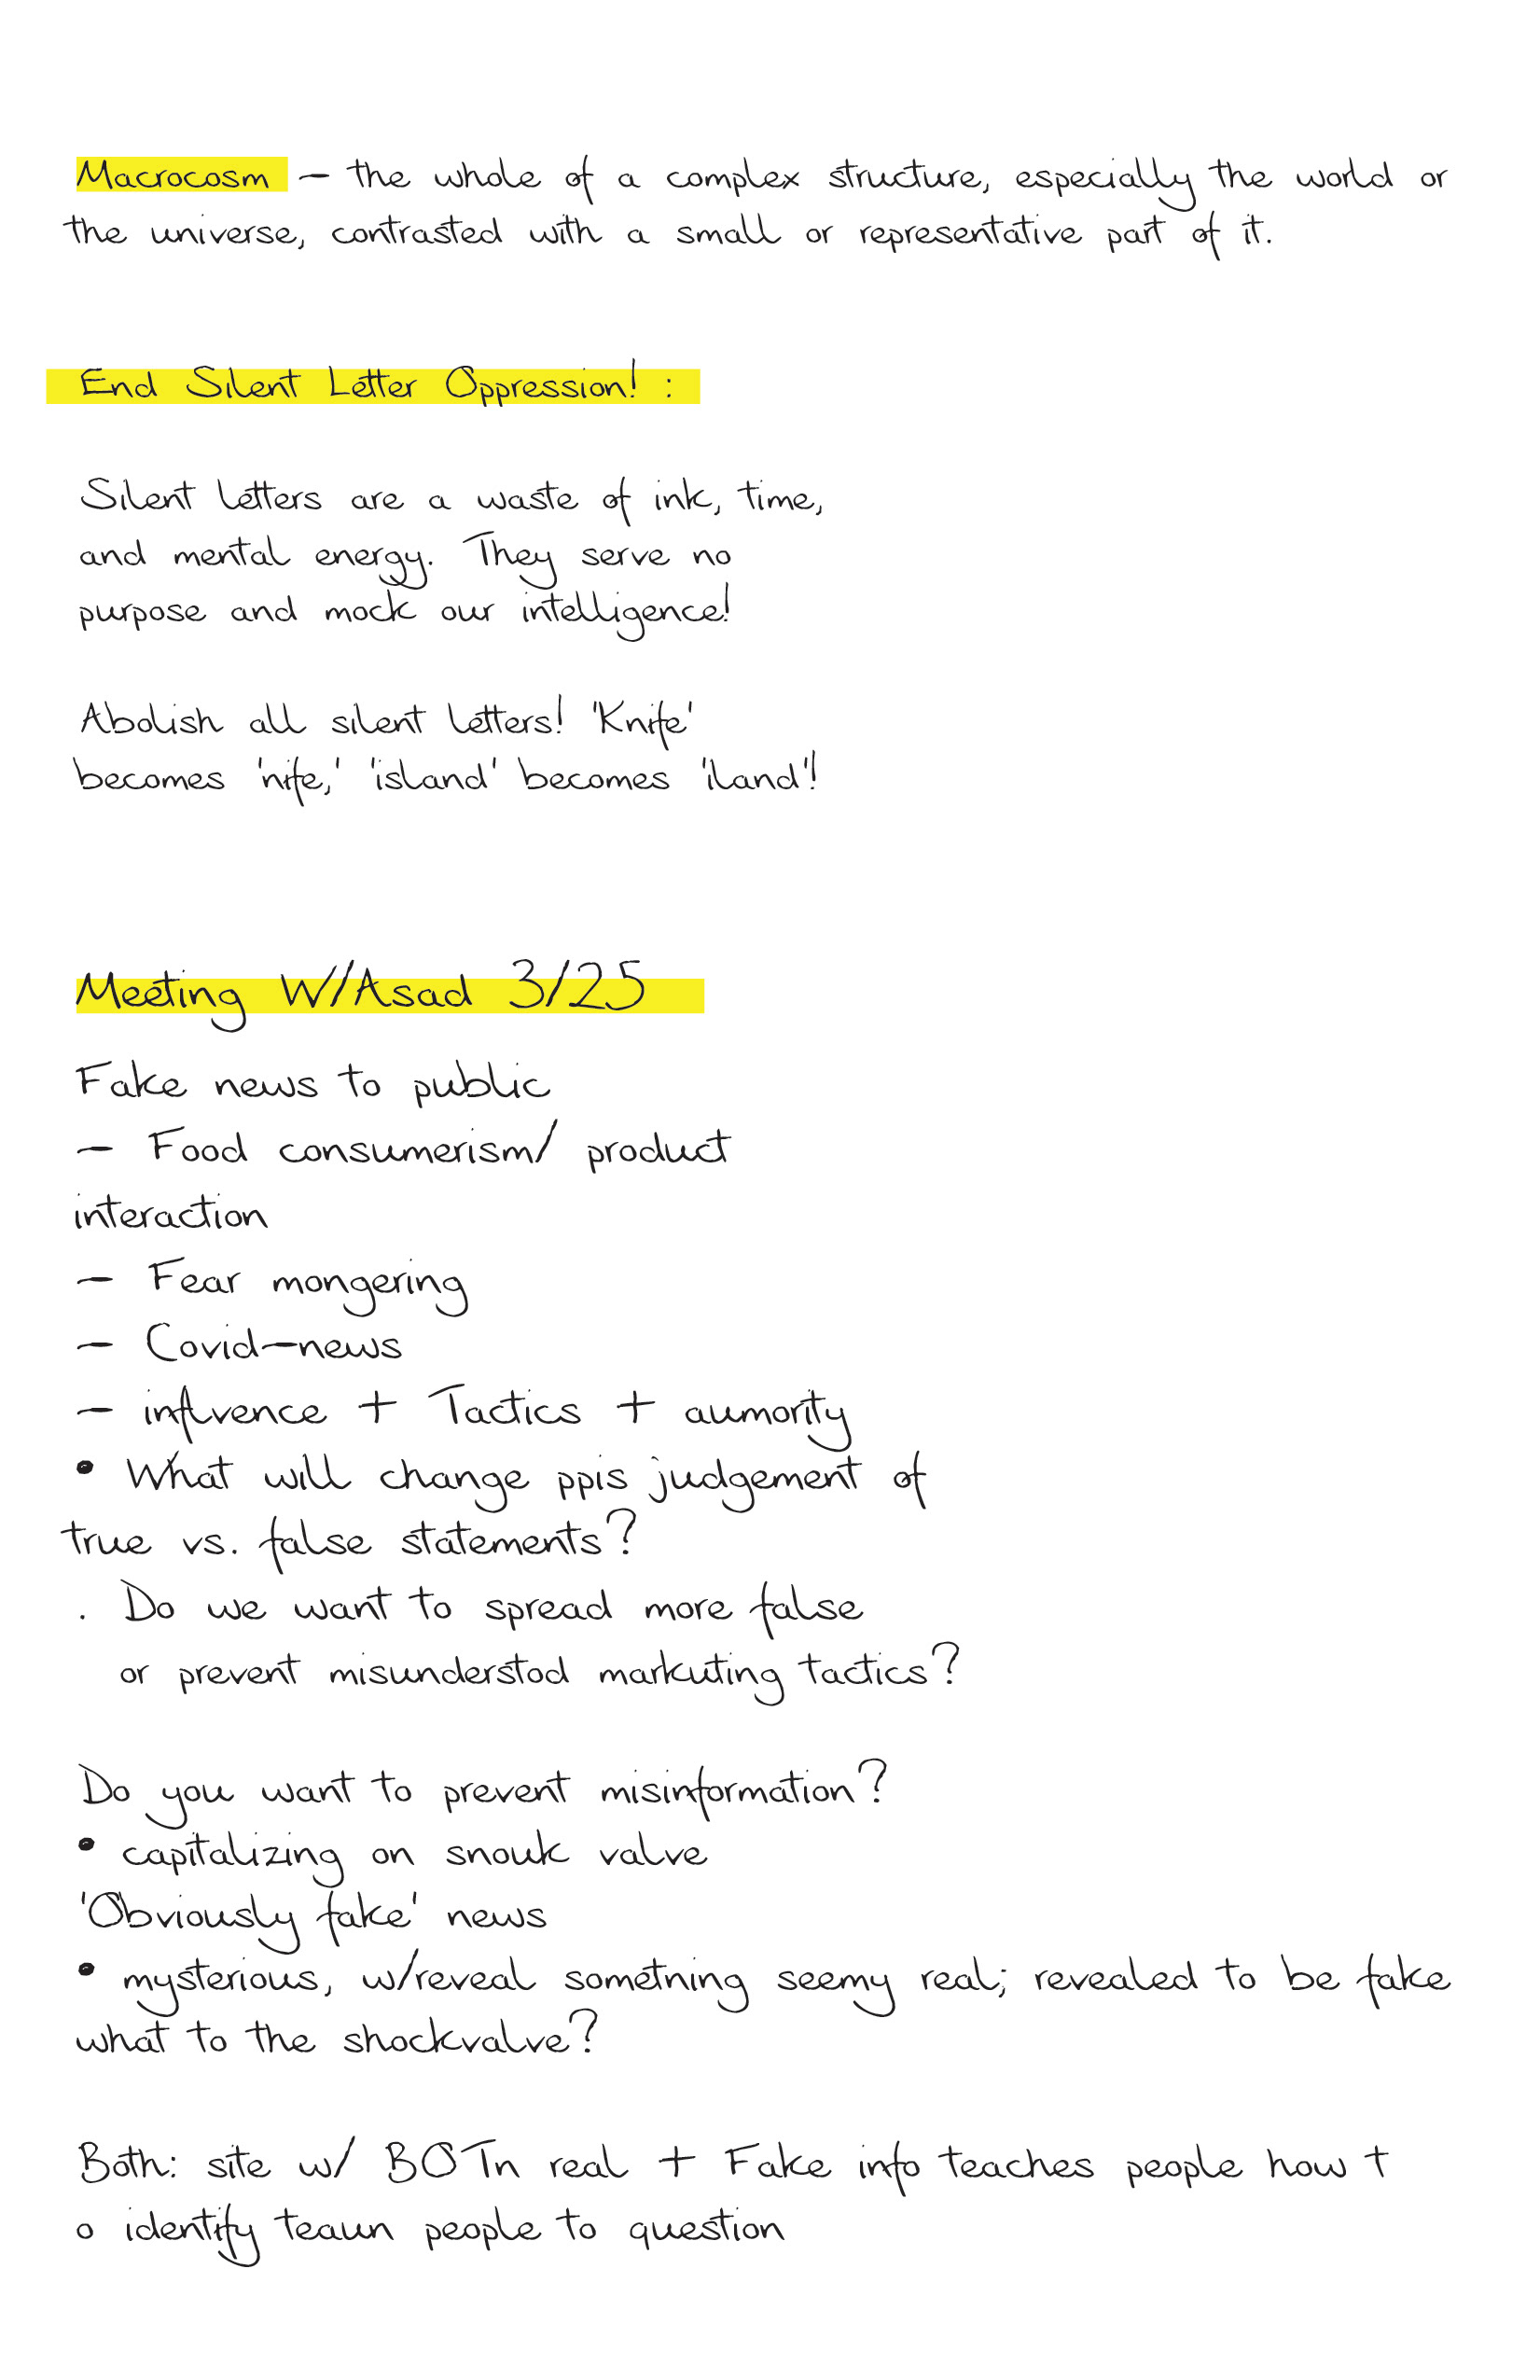 Macrocosm – the whole of a complex structure, especially the world or
the universe, contrasted with a small or representative part of it.
End Silent Letter Oppression! :
Silent letters are a waste of ink, time,
and mental energy. They serve no
purpose and mock our intelligence!
Abolish all silent letters! 'Knife'
becomes 'nife,' 'island' becomes 'iland'!
Meeting W/Asad 3/25
Fake news to public
– Food consumerism/ product
interaction
– Fear mongering
– Covid-news
– inflvence + Tactics + aumority
• What will change ppis judgement of
true vs. false statements?
. Do we want to spread more false
or prevent misunderstod markuting tactics?
Do you want to prevent misinformation?
• capitalizing on snouk valve
'Obviously fake' news
• mysterious, w/reveal sometning seemy real; revealed to be fake
what to the shockvalve?
Both: site w/ BOTn real + Fake info teaches people how t
o identify teaun people to question